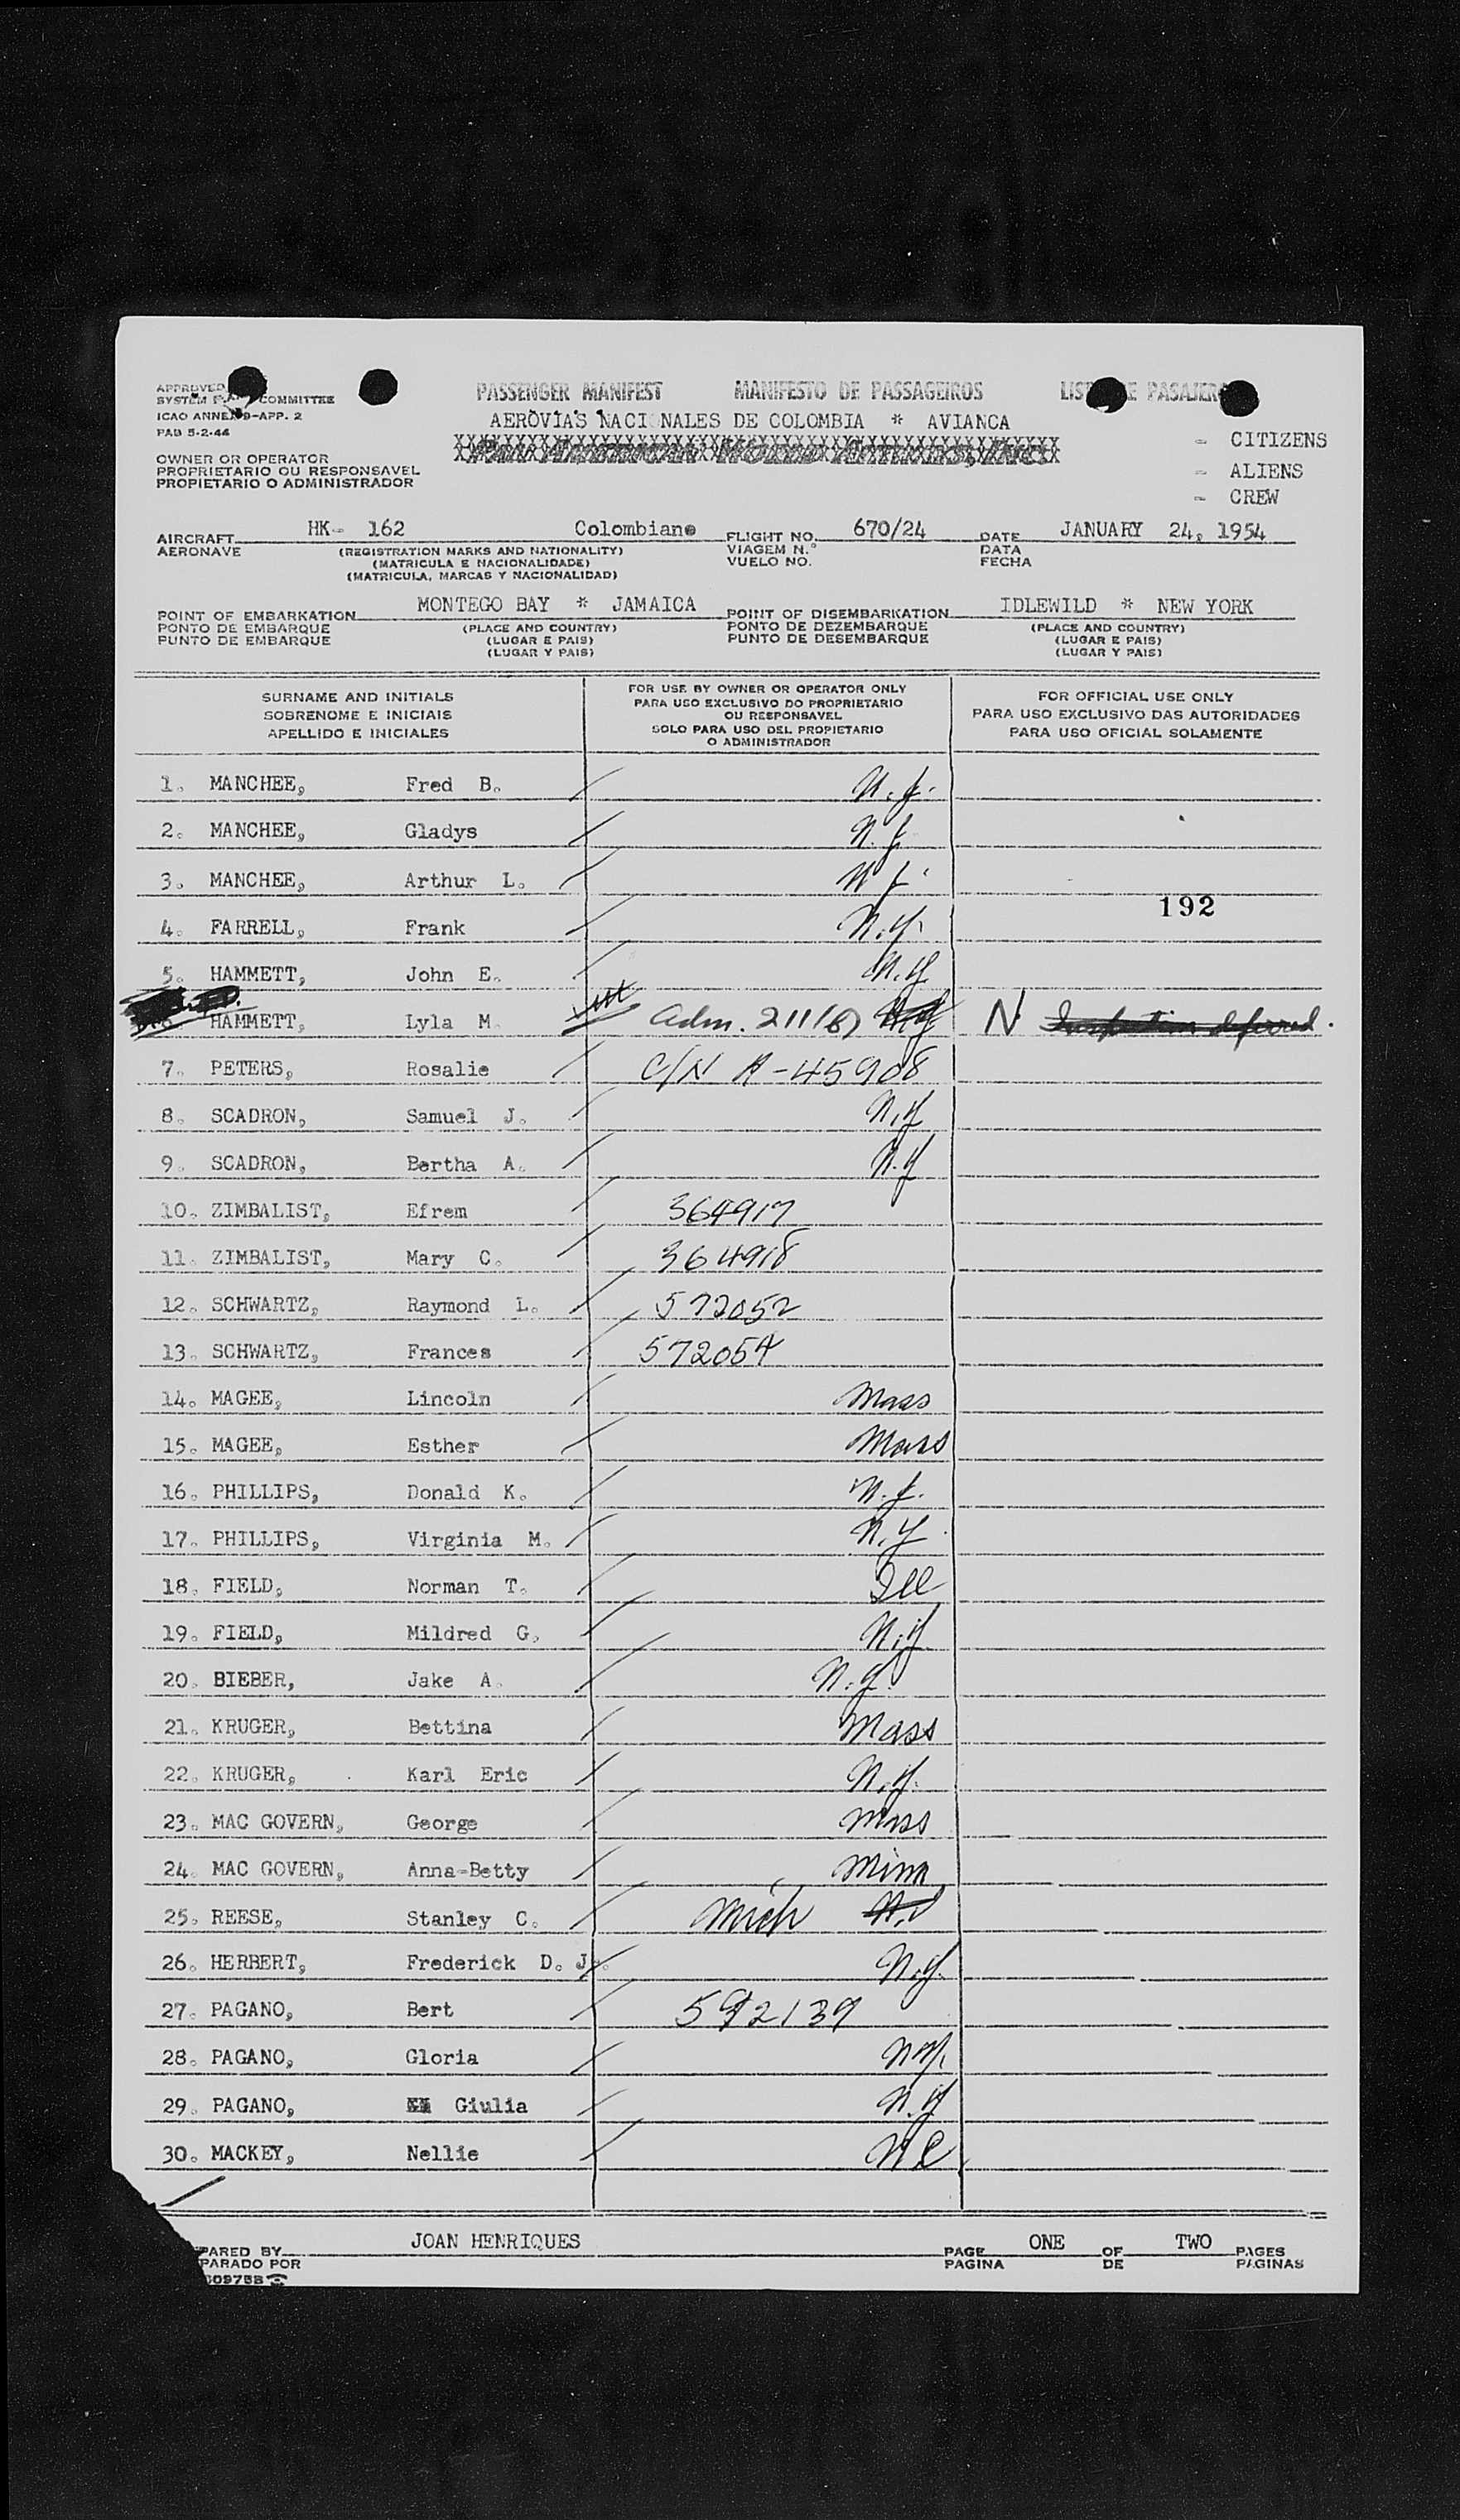 APPROVED
SYSTEM COMMITTEE
ICAO ANNEX 9-APP. 2
PAB 5-2-44
PASSENGER MANIFEST MANIFESTO DE PASSAGEIROS LISTA DE PASAJEROS
AEROVIAS NACIONALES DE COLOMBIA * AVIANCA
PAN AMERICAN WORLD AIRWAYS, INC.
- CITIZENS
- ALIENS
- CREW
OWNER OR OPERATOR
PROPRIETARIO OU RESPONSAVEL
PROPIETARIO O ADMINISTRADOR
AIRCRAFT HK- 162 Colombiano FLIGHT NO. 670/24 DATE JANUARY 24, 1954
AERONAVE (REGISTRATION MARKS AND NATIONALITY) VIAGEM N.° DATA
(MATRICULA E NACIONALIDADE) VUELO NO. FECHA
(MATRICULA, MARCAS Y NACIONALIDAD)
POINT OF EMBARKATION MONTEGO BAY * JAMAICA POINT OF DISEMBARKATION IDLEWILD * NEW YORK
PONTO DE EMBARQUE (PLACE AND COUNTRY) PONTO DE DEZEMBARQUE (PLACE AND COUNTRY)
PUNTO DE EMBARQUE (LUGAR E PAIS) PUNTO DE DESEMBARQUE (LUGAR E PAIS)
(LUGAR Y PAIS) (LUGAR Y PAIS)
SURNAME AND INITIALS
SOBRENOME E INICIAIS
APELLIDO E INICIALES
FOR USE BY OWNER OR OPERATOR ONLY
PARA USO EXCLUSIVO DO PROPRIETARIO
OU RESPONSAVEL
SOLO PARA USO DEL PROPIETARIO
O ADMINISTRADOR
FOR OFFICIAL USE ONLY
PARA USO EXCLUSIVO DAS AUTORIDADES
PARA USO OFICIAL SOLAMENTE
1. MANCHEE, Fred B. N.J.
2. MANCHEE, Gladys N.J
3. MANCHEE, Arthur L. N J.
192
4. FARRELL, Frank N.Y.
5. HAMMETT, John E. N.Y
HAMMETT, Lyla M. Adm. 211/6) N.Y N Inspection deferred.
7. PETERS, Rosalie C/N A-45908
8. SCADRON, Samuel J. N.Y
9. SCADRON, Bertha A. N.Y
10. ZIMBALIST, Efrem 364917
11. ZIMBALIST, Mary C. 364918
12. SCHWARTZ, Raymond L. 572052
13. SCHWARTZ, Frances 572054
14. MAGEE, Lincoln Mass
15. MAGEE, Esther Mass
16. PHILLIPS, Donald K. N.J.
17. PHILLIPS, Virginia M. N.Y.
18. FIELD, Norman T. Ill
19. FIELD, Mildred G, N.Y.
20. BIEBER, Jake A. N.Y.
21. KRUGER, Bettina Mass
22. KRUGER, Karl Eric N.Y.
23. MAC GOVERN, George Mass
24. MAC GOVERN, Anna-Betty Minn
25. REESE, Stanley C. Mich
26. HERBERT, Frederick D. J N.Y.
27. PAGANO, Bert 592139
28. PAGANO, Gloria N.Y.
29. PAGANO, Giulia N.Y
30. MACKEY, Nellie N.C
PARED BY JOAN HENRIQUES PAGE ONE OF TWO PAGES
PARADO POR PAGINA DE PAGINAS